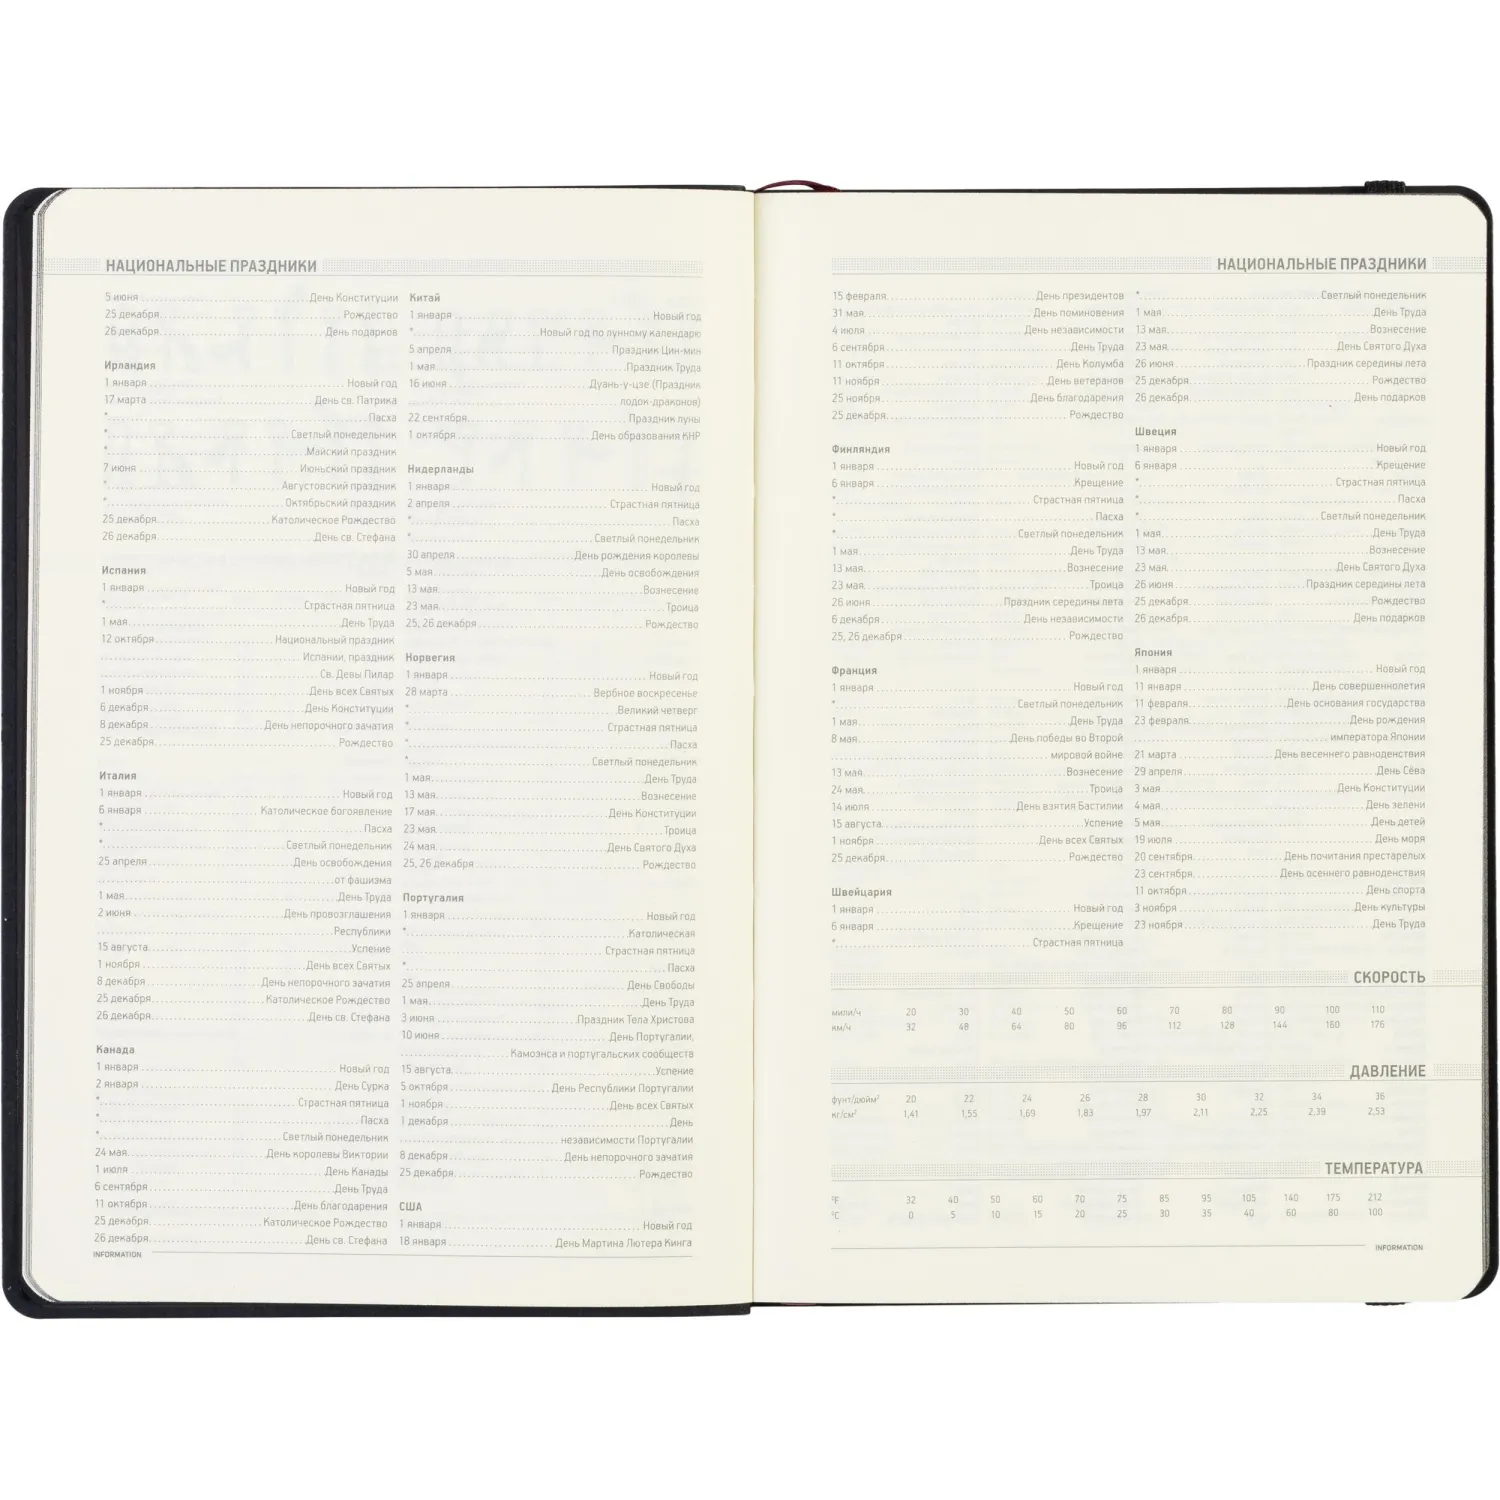 НАЦИОНАЛЬНЫЕ ПРАЗДНИКИ
5 июня День Конституции
25 декабря Рождество
26 декабря День подарков
Ирландия
1 января Новый год
17 марта День св. Патрика
* Пасха
* Светлый понедельник
* Майский праздник
7 июня Июньский праздник
* Августовский праздник
* Октябрьский праздник
25 декабря Католическое Рождество
26 декабря День св. Стефана
Испания
1 января Новый год
* Страстная пятница
1 мая День Труда
12 октября Национальный праздник
Испании, праздник
Св. Девы Пилар
1 ноября День всех Святых
6 декабря День Конституции
8 декабря День непорочного зачатия
25 декабря Рождество
Италия
1 января Новый год
6 января Католическое богоявление
* Пасха
* Светлый понедельник
25 апреля День освобождения
от фашизма
1 мая День Труда
2 июня День провозглашения
Республики
15 августа Успение
1 ноября День всех Святых
8 декабря День непорочного зачатия
25 декабря Католическое Рождество
26 декабря День св. Стефана
Канада
1 января Новый год
2 января День Сурка
* Страстная пятница
* Пасха
* Светлый понедельник
24 мая День королевы Виктории
1 июля День Канады
6 сентября День Труда
11 октября День благодарения
25 декабря Католическое Рождество
26 декабря День св. Стефана
INFORMATION
Китай
1 января Новый год
* Новый год по лунному календарю
5 апреля Праздник Цин-мин
1 мая Праздник Труда
16 июня Дуань-у-цзе (Праздник
лодок-драконов)
22 сентября Праздник луны
1 октября День образования КНР
Нидерланды
1 января Новый год
2 апреля Страстная пятница
* Пасха
* Светлый понедельник
30 апреля День рождения королевы
5 мая День освобождения
13 мая Вознесение
23 мая Троица
25, 26 декабря Рождество
Норвегия
1 января Новый год
28 марта Вербное воскресенье
* Великий четверг
* Страстная пятница
* Пасха
* Светлый понедельник
1 мая День Труда
13 мая Вознесение
17 мая День Конституции
23 мая Троица
24 мая День Святого Духа
25, 26 декабря Рождество
Португалия
1 января Новый год
* Католическая
Страстная пятница
* Пасха
25 апреля День Свободы
1 мая День Труда
3 июня Праздник Тела Христова
10 июня День Португалии,
Камоэнса и португальских сообществ
15 августа Успение
5 октября День Республики Португалии
1 ноября День всех Святых
1 декабря День
независимости Португалии
8 декабря День непорочного зачатия
25 декабря Рождество
США
1 января Новый год
18 января День Мартина Лютера Кинга
НАЦИОНАЛЬНЫЕ ПРАЗДНИКИ
15 февраля День президентов
31 мая День поминовения
4 июля День независимости
6 сентября День Труда
11 октября День Колумба
11 ноября День ветеранов
25 ноября День благодарения
25 декабря Рождество
Финляндия
1 января Новый год
6 января Крещение
* Страстная пятница
* Пасха
* Светлый понедельник
1 мая День Труда
13 мая Вознесение
23 мая Троица
26 июня Праздник середины лета
6 декабря День независимости
25, 26 декабря Рождество
Франция
1 января Новый год
* Светлый понедельник
1 мая День Труда
8 мая День победы во Второй
мировой войне
13 мая Вознесение
24 мая Троица
14 июля День взятия Бастилии
15 августа Успение
1 ноября День всех Святых
25 декабря Рождество
Швейцария
1 января Новый год
6 января Крещение
* Страстная пятница
* Светлый понедельник
1 мая День Труда
13 мая Вознесение
23 мая День Святого Духа
26 июня Праздник середины лета
25 декабря Рождество
26 декабря День подарков
Швеция
1 января Новый год
6 января Крещение
* Страстная пятница
* Пасха
* Светлый понедельник
1 мая День Труда
13 мая Вознесение
23 мая День Святого Духа
26 июня Праздник середины лета
25 декабря Рождество
26 декабря День подарков
Япония
1 января Новый год
11 января День совершеннолетия
11 февраля День основания государства
23 февраля День рождения
императора Японии
21 марта День весеннего равноденствия
29 апреля День Сёва
3 мая День Конституции
4 мая День зелени
5 мая День детей
19 июля День моря
20 сентября День почитания престарелых
23 сентября День осеннего равноденствия
11 октября День спорта
3 ноября День культуры
23 ноября День Труда
СКОРОСТЬ
мили/ч 20 30 40 50 60 70 80 90 100 110
км/ч 32 48 64 80 96 112 128 144 160 176
ДАВЛЕНИЕ
фунт/дюйм² 20 22 24 26 28 30 32 34 36
кг/см² 1,41 1,55 1,69 1,83 1,97 2,11 2,25 2,39 2,53
ТЕМПЕРАТУРА
°F 32 40 50 60 70 75 85 95 105 140 175 212
°C 0 5 10 15 20 25 30 35 40 60 80 100
INFORMATION